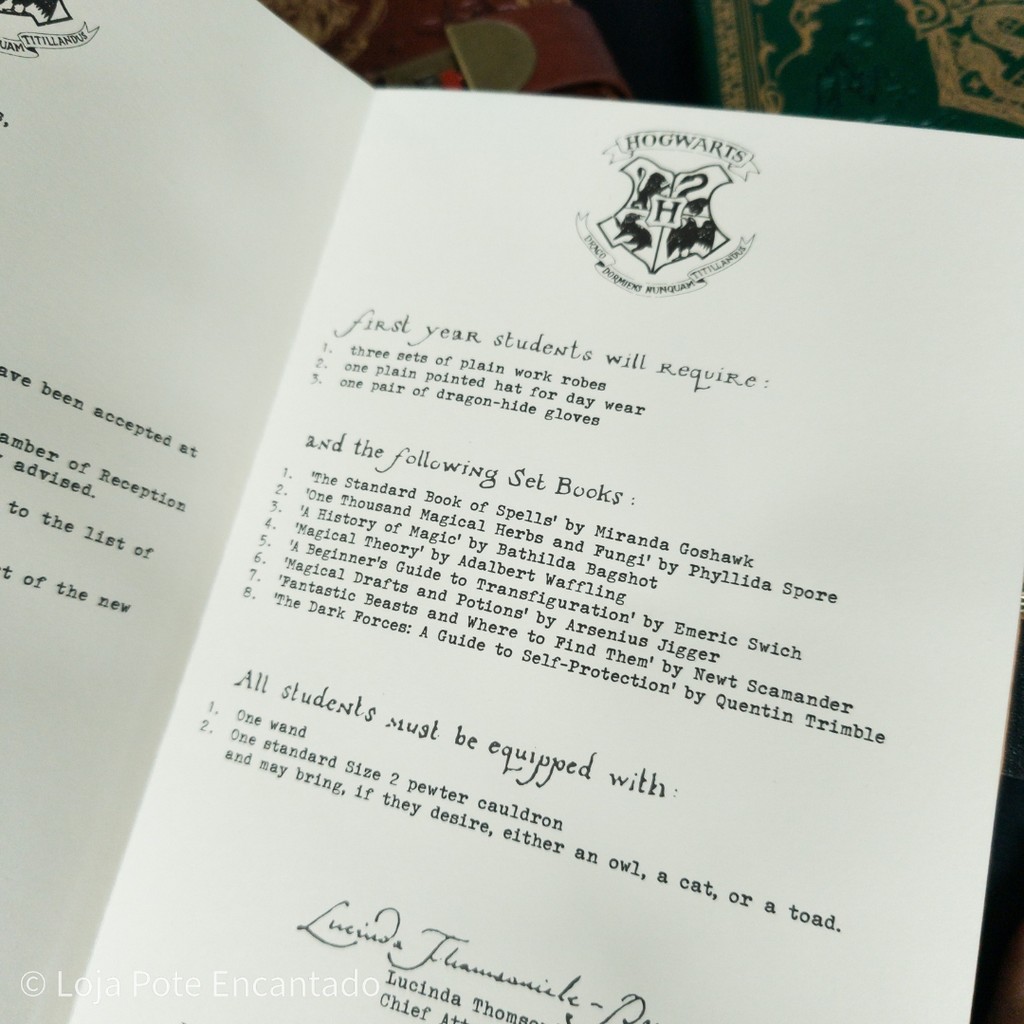 UAM TITILLANDUS
ave been accepted at
amber of Reception
advised.
to the list of
t of the new
HOGWARTS
H
DRACO DORMIENS NUNQUAM TITILLANDUS
first year students will require:
1. three sets of plain work robes
2. one plain pointed hat for day wear
3. one pair of dragon-hide gloves
and the following Set Books:
1. 'The Standard Book of Spells' by Miranda Goshawk
2. 'One Thousand Magical Herbs and Fungi' by Phyllida Spore
3. 'A History of Magic' by Bathilda Bagshot
4. 'Magical Theory' by Adalbert Waffling
5. 'A Beginner's Guide to Transfiguration' by Emeric Swich
6. 'Magical Drafts and Potions' by Arsenius Jigger
7. 'Fantastic Beasts and Where to Find Them' by Newt Scamander
8. 'The Dark Forces: A Guide to Self-Protection' by Quentin Trimble
All students must be equipped with:
1. One wand
2. One standard Size 2 pewter cauldron
and may bring, if they desire, either an owl, a cat, or a toad.
Lucinda Thomsonicle-P
Lucinda Thomson
Chief Att
© Loja Pote Encantado